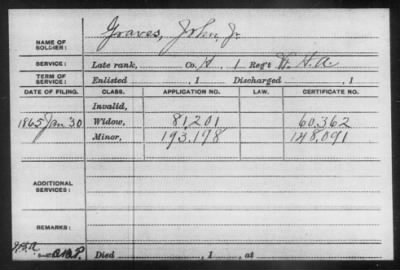 NAME OF SOLDIER: Graves, John, Jr.
SERVICE: Late rank, Co. H, 1 Reg't H. A.
TERM OF SERVICE: Enlisted , 1 Discharged , 1
DATE OF FILING. CLASS. APPLICATION NO. LAW. CERTIFICATE NO.
Invalid,
1865 Jan 30 Widow, 81,201 60,362
Minor, 193,198 148,091
ADDITIONAL SERVICES:
REMARKS:
Died , 1 , at